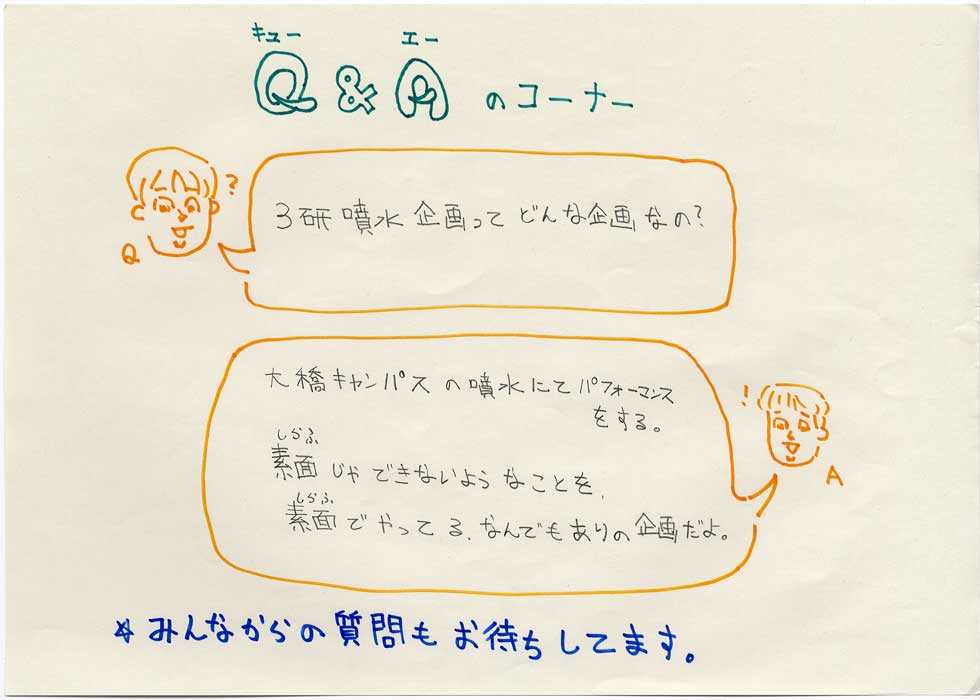 キュー エー
Q & A のコーナー
?
Q
3研噴水企画ってどんな企画なの?
大橋キャンパスの噴水にてパフォーマンス
をする。
しらふ
素面じゃできないようなことを、
しらふ
素面でやってる、なんでもありの企画だよ。
!
A
☆みんなからの質問もお待ちしてます。